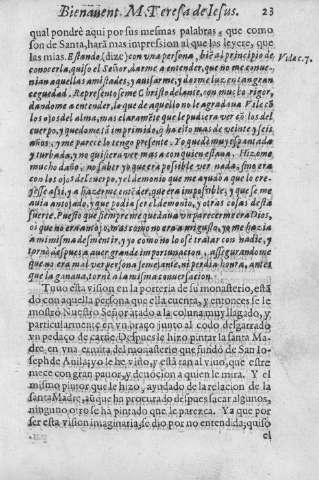 Bienauent. M. Teresa de Iesus. 23
qual pondrè aqui por sus mesmas palabras, que como
son de Santa, hará mas impression al que las leyere, que
las mias. Estando, (dize) con vna persona, bien al principio de Vida c. 7.
conocerla, quiso el Señor, darme a entender, que no me conue-
nian aquellas amistades, y auisarme, y darme luz en tan gran
ceguedad. Representoseme Christo delante, con mucho rigor,
dandome a entender, lo que de aquello no le agradaua. Vile cõ
los ojos del alma, mas claramẽte que le pudiera ver cõ los del
cuerpo, y quedome tã imprimido, q̃ ha esto mas de veinte y seis
años, y me parece lo tengo presente. Yo quedè muy espantada
y turbada, y no quisiera ver mas a con quien estaua. Hizome
mucho daño, no saber yo que era posible ver nada, sino era
con los ojos del cuerpo, y el demonio que me ayudò a que lo cre-
yesse assi, y a hazerme entẽder, que era imposible, y que se me
auia antojado, y que podia ser el demonio, y otras cosas desta
suerte. Puesto que siempre me quedaua vn parecerme era Dios,
o que no era antojo, mas como no era a mi gusto, yo me hazia
a mi misma desmentir, y yo como no lo osè tratar con nadie, y
tornò despues a auer grande importunacion, assegurandome
que no era mal ver persona semejante, ni perdia honra, antes
que la ganaua, tornè a la misma conuersacion.
Tuuo esta vision en la porteria de su monasterio, està
do con aquella persona que ella cuenta, y entonces se le
mostrò Nuestro Señor atado a la coluna muy llagado, y
particularmente en vn braço junto al codo desgarrado
vn pedaço de carne. Despues le hizo pintar la santa Ma-
dre, en vna ermita del monasterio que fundò de San Io-
seph de Auila: yo le he visto, y està tan al viuo, que estre
mece con gran pauor, y deuocion a quien le mira. Y el
mismo pintor que le hizo, ayudado de la relacion de la
santa Madre, aũ que ha procurado despues sacar algunos,
ninguno otro se ha pintado que le parezca. Ya que por
ser esta vision imaginaria, se dio por no entendida, quiso
el